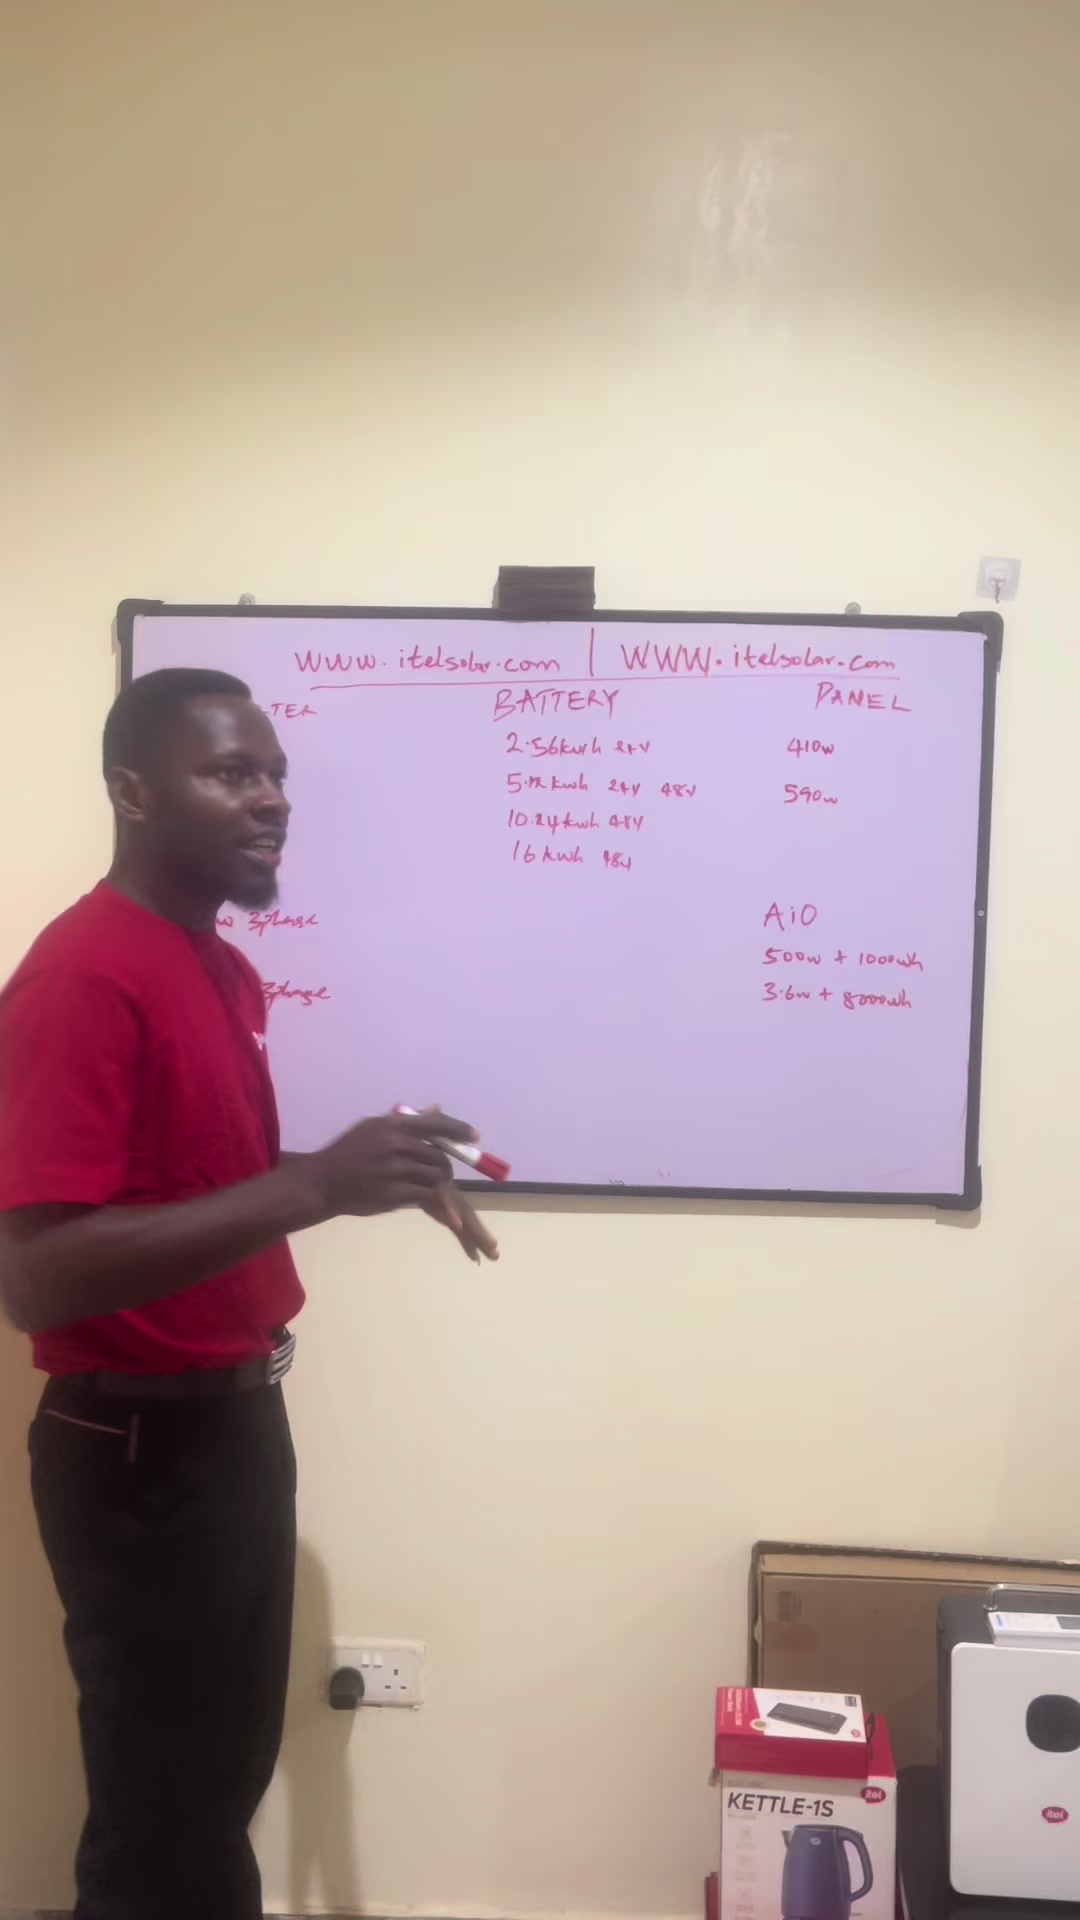 www.itelsolar.com | WWW.itelsolar.com
TER
BATTERY
PANEL
2.56kwh 24V
5.12 kwh 24V 48V
10.24kwh 48V
16kwh 48V
410w
590w
3phase
3phase
AiO
500w + 1000wh
3.6w + 8000wh
itel
KETTLE-1S
itel